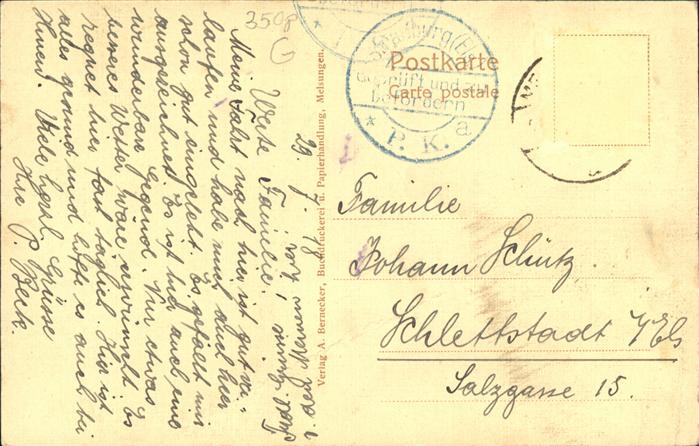 3508
Straßburg (Els)
Geprüft und zu
befördern
P. K. a
Postkarte
Carte postale
Verlag A. Bernecker, Buchdruckerei u. Papierhandlung, Melsungen.
29. 7. 18
Werte Familie!
Meine Fahrt nach hier ist gut ver-
laufen und habe mich auch hier
schon gut eingelebt. Es gefällt mir
ausgezeichnet. Es ist hier auch eine
wunderbare Gegend. Nur etwas
besseres Wetter wäre erwünscht. Es
regnet hier fast täglich. Hier ist
alles gesund und hoffe es auch bei
Ihnen. Viele herzl. Grüsse
Ihre P. Beck.
Familie
Johann Schütz
Schlettstadt i/Els
Salzgasse 15.